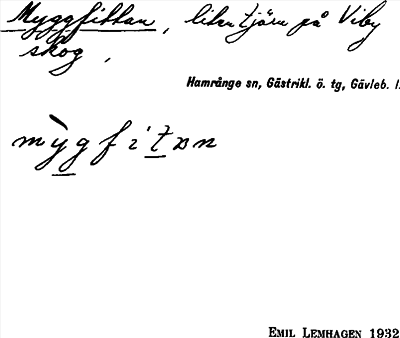 Myggfittan, liten tjärn på Viby
skog,
Hamrånge sn, Gästrikl. ö. tg, Gävleb. l.
mỳgfitɒn
EMIL LEMHAGEN 1932